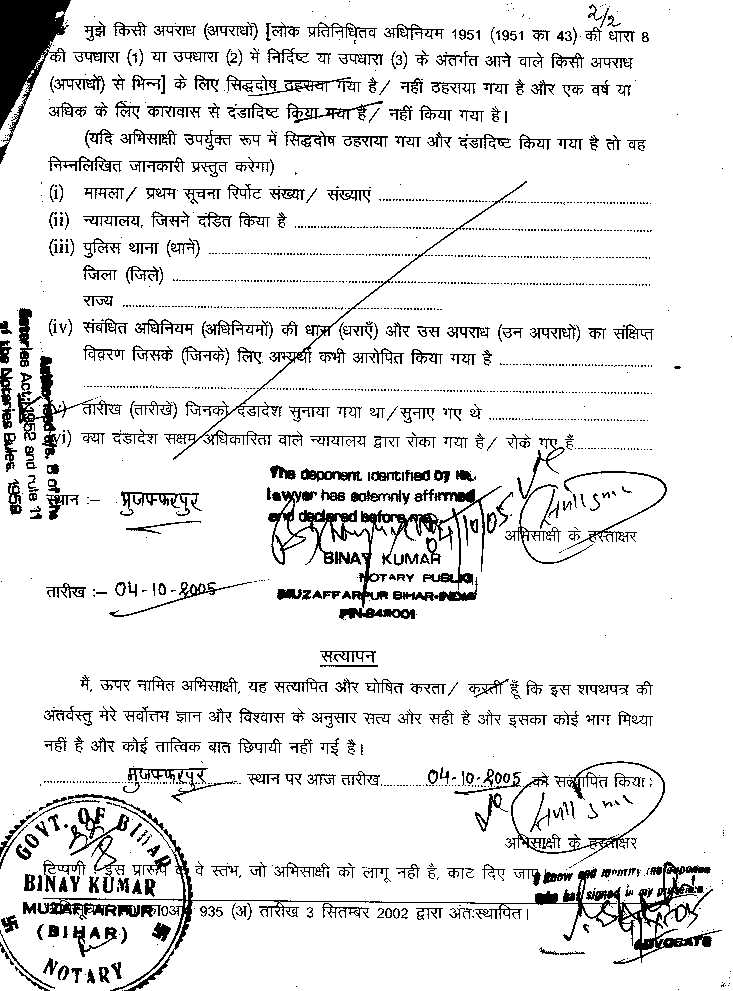 2/2
मुझे किसी अपराध (अपराधों) [लोक प्रतिनिधित्व अधिनियम 1951 (1951 का 43) की धारा 8
की उपधारा (1) या उपधारा (2) में निर्दिष्ट या उपधारा (3) के अंतर्गत आने वाले किसी अपराध
(अपराधों) से भिन्न] के लिए सिद्धदोष ठहराया गया है/ नहीं ठहराया गया है और एक वर्ष या
अधिक के लिए कारावास से दंडादिष्ट किया गया है/ नहीं किया गया है।
(यदि अभिसाक्षी उपर्युक्त रूप में सिद्धदोष ठहराया गया और दंडादिष्ट किया गया है तो वह
निम्नलिखित जानकारी प्रस्तुत करेगा)
(i) मामला/ प्रथम सूचना रिर्पोट संख्या/ संख्याएं
(ii) न्यायालय, जिसने दंडित किया है
(iii) पुलिस थाना (थाने)
जिला (जिले)
राज्य
(iv) संबंधित अधिनियम (अधिनियमों) की धारा (धराएँ) और उस अपराध (उन अपराधों) का संक्षिप्त
विवरण जिसके (जिनके) लिए अभ्यर्थी कभी आरोपित किया गया है
(v) तारीख (तारीखें) जिनको दंडादेश सुनाया गया था/सुनाए गए थे
(vi) क्या दंडादेश सक्षम अधिकारिता वाले न्यायालय द्वारा रोका गया है/ रोके गए हैं
Authorised U/s. 8 of the
Notaries Act, 1952 and rule 11
of the Notaries Rules. 1956
The deponent identified by
lawyer has solemnly affirmed
and declared before me
04/10/05
स्थान :- मुजफ्फरपुर
अभिसाक्षी के हस्ताक्षर
BINAY KUMAR
NOTARY PUBLIC
MUZAFFARPUR BIHAR-INDIA
PIN-842001
तारीख :- 04-10-2005
सत्यापन
मैं, ऊपर नामित अभिसाक्षी, यह सत्यापित और घोषित करता/ करती हूँ कि इस शपथपत्र की
अंतर्वस्तु मेरे सर्वोतम ज्ञान और विश्वास के अनुसार सत्य और सही है और इसका कोई भाग मिथ्या
नहीं है और कोई तात्विक बात छिपायी नहीं गई है।
मुजफ्फरपुर स्थान पर आज तारीख 04-10-2005 को सत्यापित किया।
अभिसाक्षी के हस्ताक्षर
टिप्पणी इस प्रारूप के वे स्तंभ, जो अभिसाक्षी को लागू नही है, काट दिए जाए
935 (अ) तारीख 3 सितम्बर 2002 द्वारा अंतःस्थापित।
GOVT. OF BIHAR
BINAY KUMAR
MUZAFFARPUR
(BIHAR)
NOTARY
I know and identify the deponent
who has signed in my presence
ADVOCATE